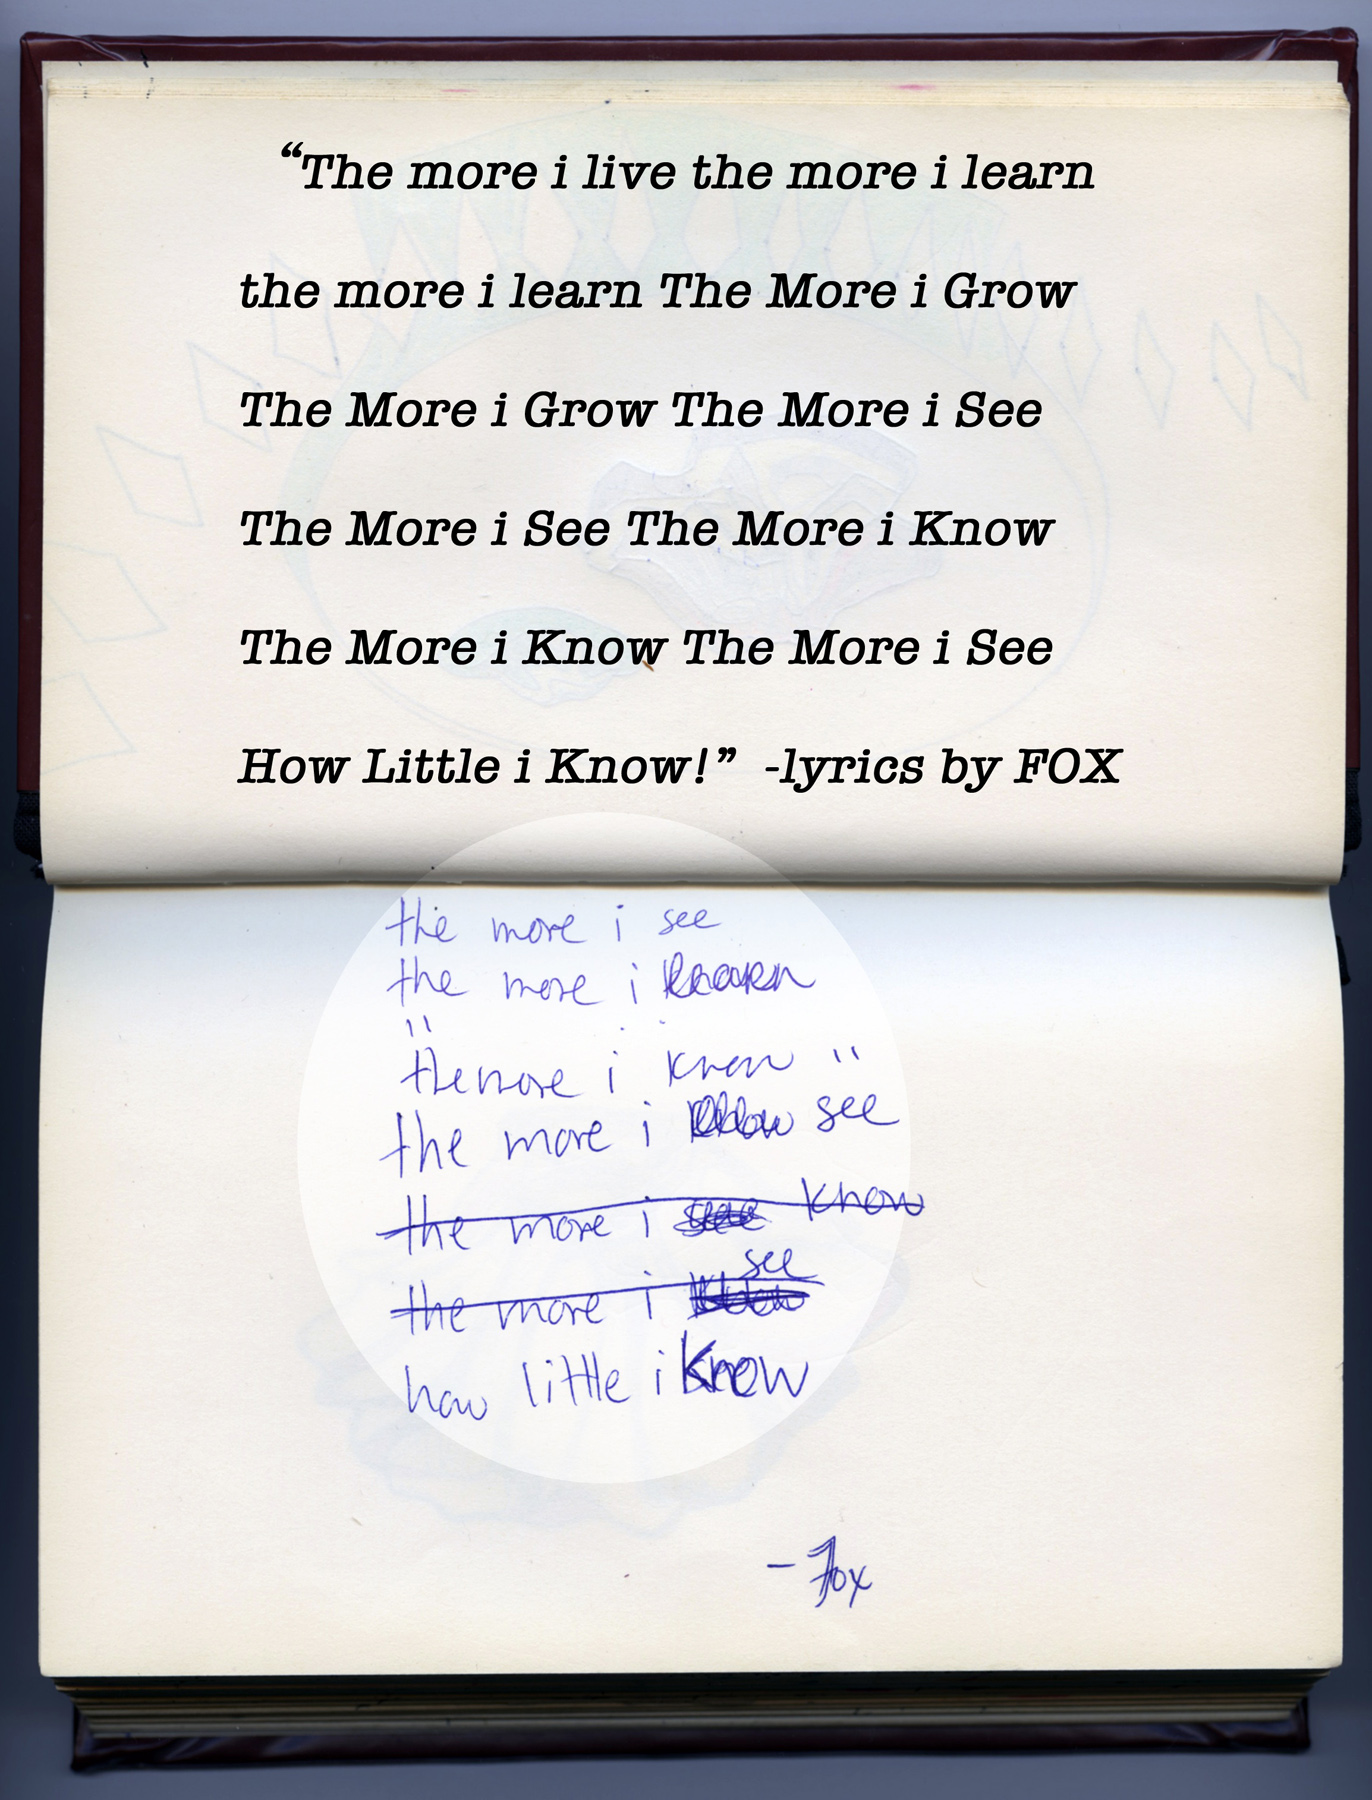 “The more i live the more i learn
the more i learn The More i Grow
The More i Grow The More i See
The More i See The More i Know
The More i Know The More i See
How Little i Know!” -lyrics by FOX
the more i see
the more i learn
"
the more i know "
the more i see
the more i know
see
the more i
how little i know
- Fox